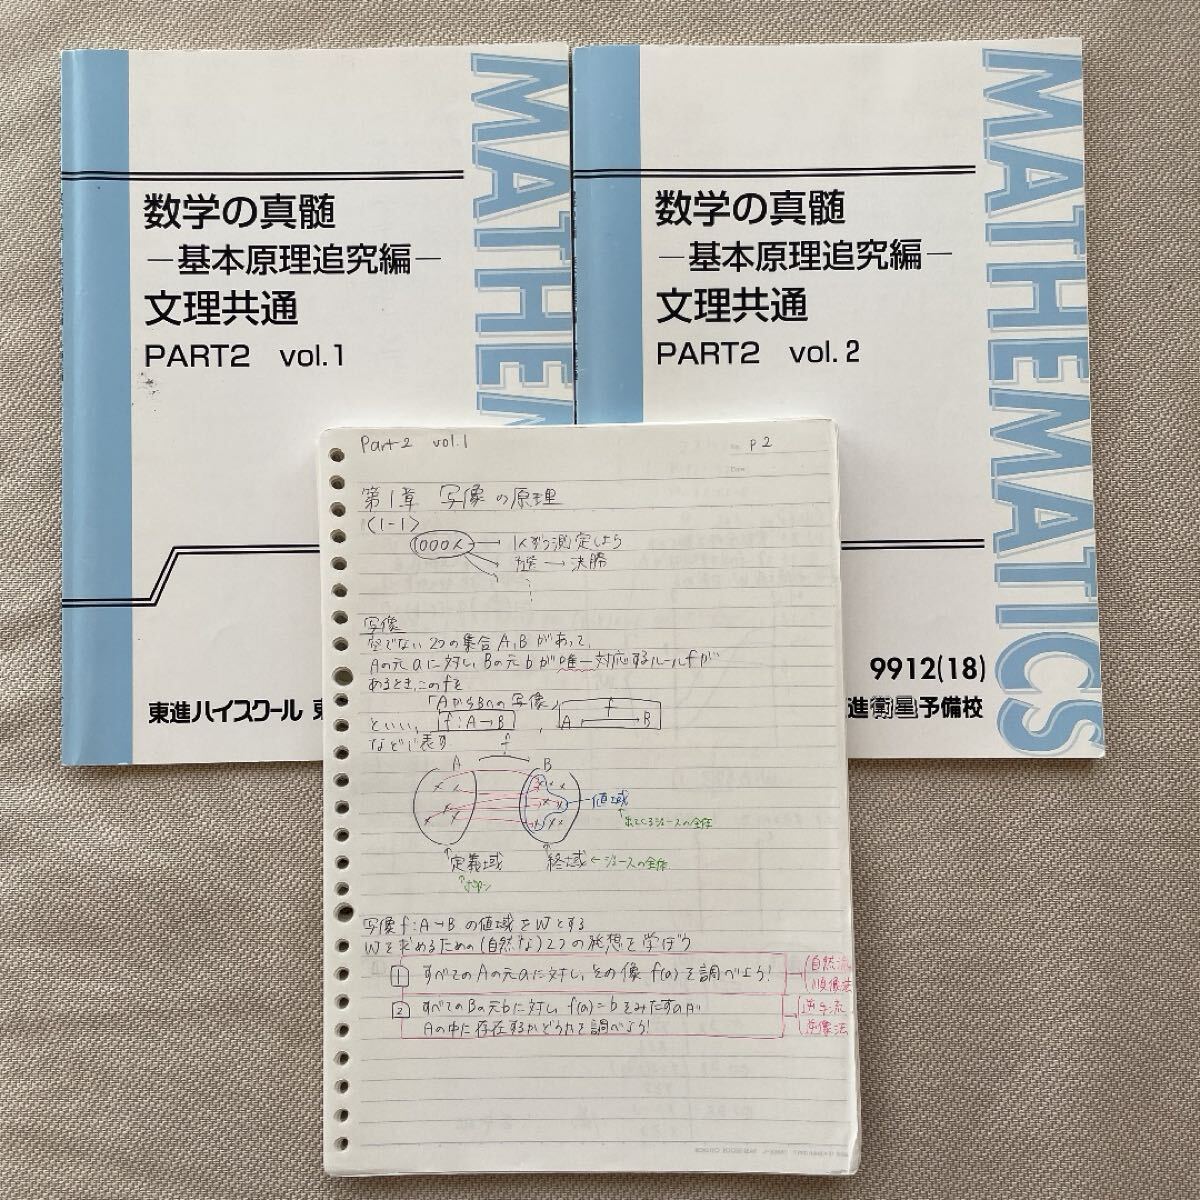 数学の真髄
—基本原理追究編—
文理共通
PART2 vol.1
東進ハイスクール 東
MATHEM
数学の真髄
—基本原理追究編—
文理共通
PART2 vol.2
9912(18)
進衛星予備校
MATHEMATICS
Part2 vol.1
P2
第1章 写像の原理
<1-1>
1000人 → 1人ずつ測定しよう
→ 決勝
写像
空でない2つの集合A,Bがあって、
Aの元aに対し、Bの元bが唯一対応するルールfが
あるとき、このfを
「AからBへの写像」
といい、f:A→B, A f B
などで表す
f
A B
値域
出てくるジュースの全体
定義域 終域 ← ジュースの全体
ボタン
写像f:A→Bの値域をWとする
Wを求めるための(自然な)2つの発想を学ぼう
1 すべてのAの元aに対し、その像f(a)を調べよう!
自然流
順像法
2 すべてのBの元bに対し、f(a)=bをみたすaが
Aの中に存在するかどうかを調べよう!
逆手流
逆像法